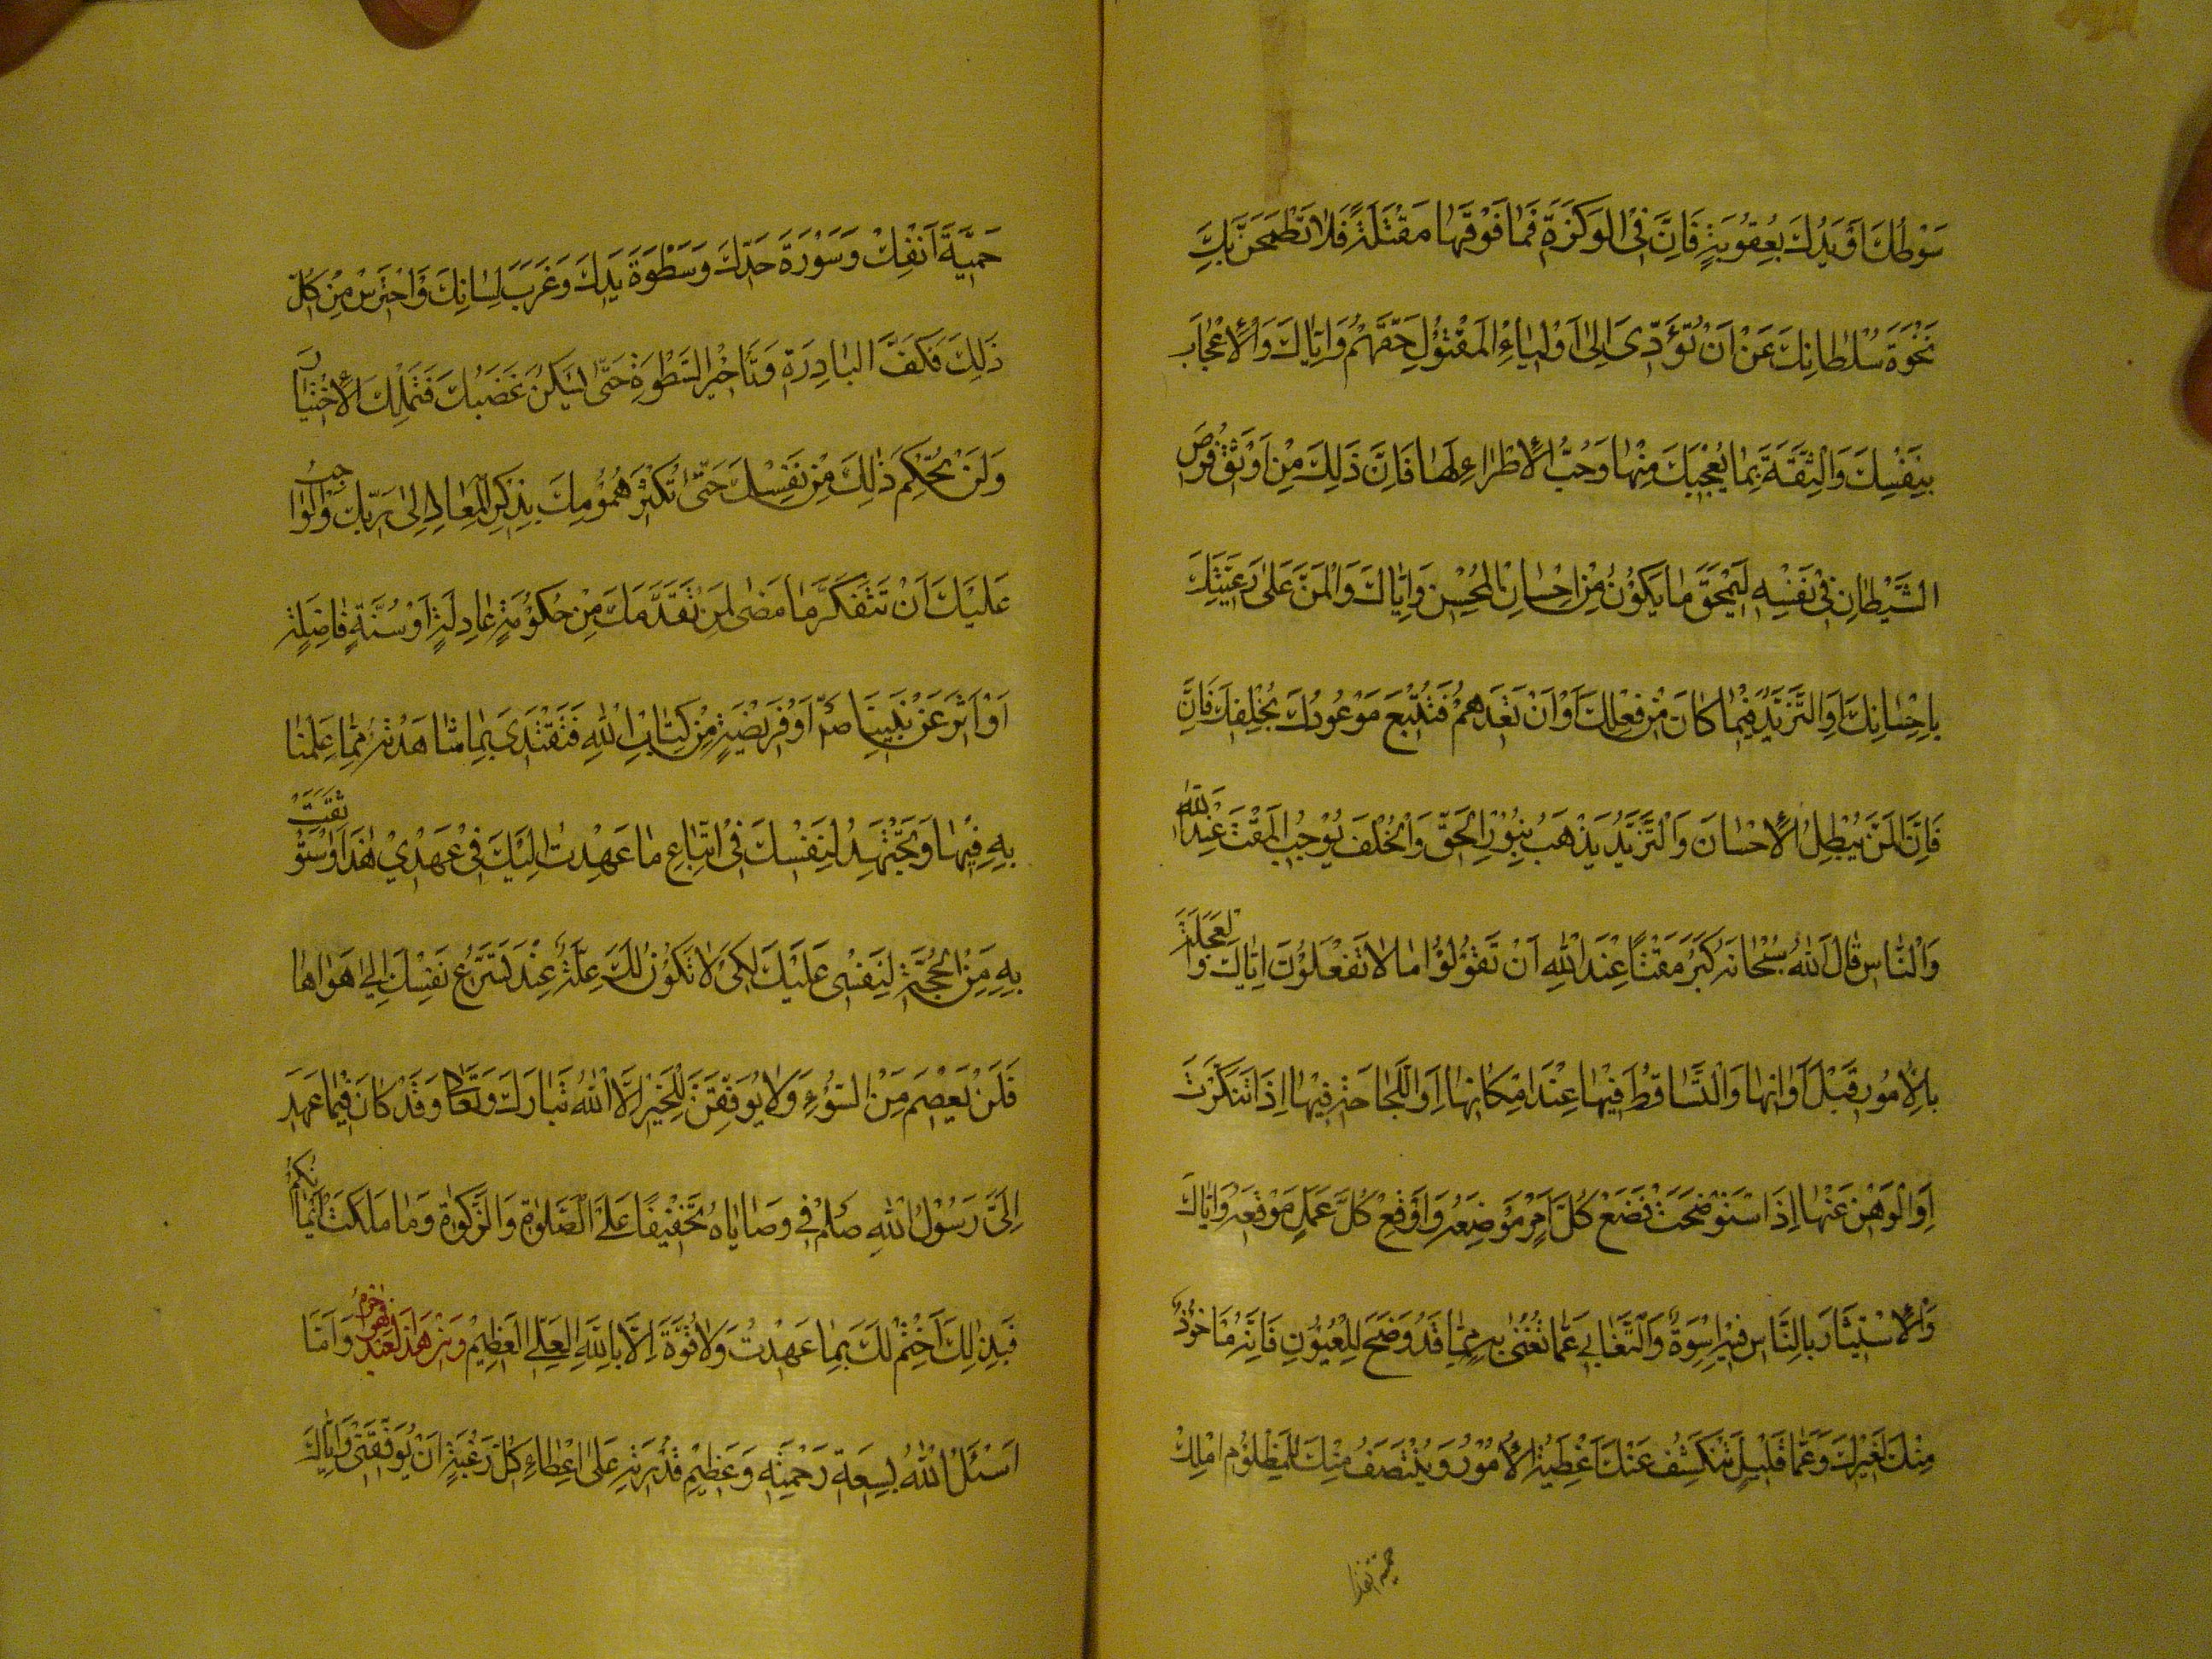 سَوْطُكَ اَوْ يَدُكَ بِعُقُوبَةٍ فَاِنَّ فِى الْوَكْزَةِ فَمَا فَوْقَهَا مَقْتَلَةً فَلَا تَطْمَحَنَّ بِكَ
نَخْوَةُ سُلْطَانِكَ عَنْ اَنْ تُؤَدِّىَ اِلٰى اَوْلِيَاءِ الْمَقْتُوْلِ حَقَّهُمْ وَاِيَّاكَ وَالْاِعْجَابَ
بِنَفْسِكَ وَالثِّقَةَ بِمَا يُعْجِبُكَ مِنْهَا وَحُبَّ الْاِطْرَاءِ لَهَا فَاِنَّ ذَلِكَ مِنْ اَوْثَقِ فُرَصِ
الشَّيْطَانِ فِى نَفْسِهِ لِيَمْحَقَ مَا يَكُوْنُ مِنْ اِحْسَانِ الْمُحْسِنِ وَاِيَّاكَ وَالْمَنَّ عَلٰى رَعِيَّتِكَ
بِاِحْسَانِكَ اَوِ التَّزَيُّدَ فِيْمَا كَانَ مِنْ فِعْلِكَ اَوْ اَنْ تَعِدَهُمْ فَتُتْبِعَ مَوْعُودَكَ بِخُلْفِكَ فَاِنَّ
فَاِنَّ الْمَنَّ يُبْطِلُ الْاِحْسَانَ وَالتَّزَيُّدَ يَذْهَبُ بِنُوْرِ الْحَقِّ وَالْخُلْفَ يُوْجِبُ الْمَقْتَ عِنْدَ اللّٰهِ
وَالنَّاسِ قَالَ اللّٰهُ سُبْحَانَهُ كَبُرَ مَقْتًا عِنْدَ اللّٰهِ اَنْ تَقُوْلُوْا مَا لَا تَفْعَلُوْنَ اِيَّاكَ وَالْعَجَلَةَ
بِالْاُمُورِ قَبْلَ اَوَانِهَا وَالتَّسَاقُطَ فِيْهَا عِنْدَ اِمْكَانِهَا اَوِ اللَّجَاجَةَ فِيْهَا اِذَا تَنَكَّرَتْ
اَوِ الْوَهْنَ عَنْهَا اِذَا اسْتَوْضَحَتْ فَضَعْ كُلَّ اَمْرٍ مَوْضِعَهُ وَاَوْقِعْ كُلَّ عَمَلٍ مَوْقِعَهُ وَاِيَّاكَ
وَالْاِسْتِيْثَارَ بِالنَّاسِ فِيْهِ اُسْوَةٌ وَالتَّغَابِى عَمَّا تُعْنٰى بِهِ مِمَّا قَدْ وَضَحَ لِلْعُيُوْنِ فَاِنَّهُ مَاخُوْذٌ
مِنْكَ لِغَيْرِكَ وَعَمَّا قَلِيْلٍ تَنْكَشِفُ عَنْكَ اَغْطِيَةُ الْاُمُوْرِ وَيُنْتَصَفُ مِنْكَ لِلْمَظْلُوْمِ امْلِكْ
حمية انفك
حَمِيَّةَ اَنْفِكَ وَسَوْرَةَ حَدِّكَ وَسَطْوَةَ يَدِكَ وَغَرْبَ لِسَانِكَ وَاحْتَرِسْ مِنْ كُلِّ
ذَلِكَ فَكَفِّ الْبَادِرَةِ وَتَاخِيْرِ السَّطْوَةِ حَتّٰى يَسْكُنَ غَضَبُكَ فَتَمْلِكَ الْاِخْتِيَارَ
وَلَنْ تُحْكِمَ ذٰلِكَ مِنْ نَفْسِكَ حَتّٰى تُكْثِرَ هُمُوْمَكَ بِذِكْرِ الْمَعَادِ اِلٰى رَبِّكَ وَالْوَاجِبُ
عَلَيْكَ اَنْ تَتَفَكَّرَ مَا مَضٰى لِمَنْ تَقَدَّمَكَ مِنْ حُكُوْمَةٍ عَادِلَةٍ اَوْ سُنَّةٍ فَاضِلَةٍ
اَوْ اَثَرٍ عَنْ نَبِيِّنَا صم اَوْ فَرِيْضَةٍ مِنْ كِتَابِ اللّٰهِ فَتَقْتَدِىَ بِمَا شَاهَدْتَهُ مِمَّا عَلِمْنَا
بِهِ فِيْهَا وَتَجْتَهِدُ لِنَفْسِكَ فِى اتِّبَاعِ مَا عَهِدْتُ اِلَيْكَ فِى عَهْدِيْ هٰذَا وَاسْتَوْثَقْتُ
بِهِ مِنَ الْحُجَّةِ لِنَفْسِى عَلَيْكَ لِكَىْ لَا تَكُوْنَ لَكَ عِلَّةٌ عِنْدَ تَسَرُّعِ نَفْسِكَ اِلٰى هَوَاهَا
فَلَنْ يَعْصِمَ مِنَ السُّوْءِ وَلَا يُوَفِّقَنَّ لِلْخَيْرِ اِلَّا اللّٰهُ تَبَارَكَ وَتَعَالٰى وَقَدْ كَانَ فِيْمَا عَهِدَ
اِلَىَّ رَسُوْلُ اللّٰهِ صلم فِى وَصَايَاهُ تَخْفِيْفًا عَلَى الصَّلٰوةِ وَالزَّكٰوةِ وَمَا مَلَكَتْ اَيْمَانُكُمْ
فَبِذٰلِكَ اَخْتِمُ لَكَ بِمَا عَهِدْتُ وَلَا قُوَّةَ اِلَّا بِاللّٰهِ الْعَلِىِّ الْعَظِيْمِ وَمِنْ هٰذَا الْعَهْدِ وَهُوَ اٰخِرُهُ وَاَنَا
اَسْئَلُ اللّٰهَ بِسِعَةِ رَحْمَتِهِ وَعَظِيْمِ قُدْرَتِهِ عَلٰى اِعْطَاءِ كُلِّ رَغْبَةٍ اَنْ يُوَفِّقَنِى وَاِيَّاكَ